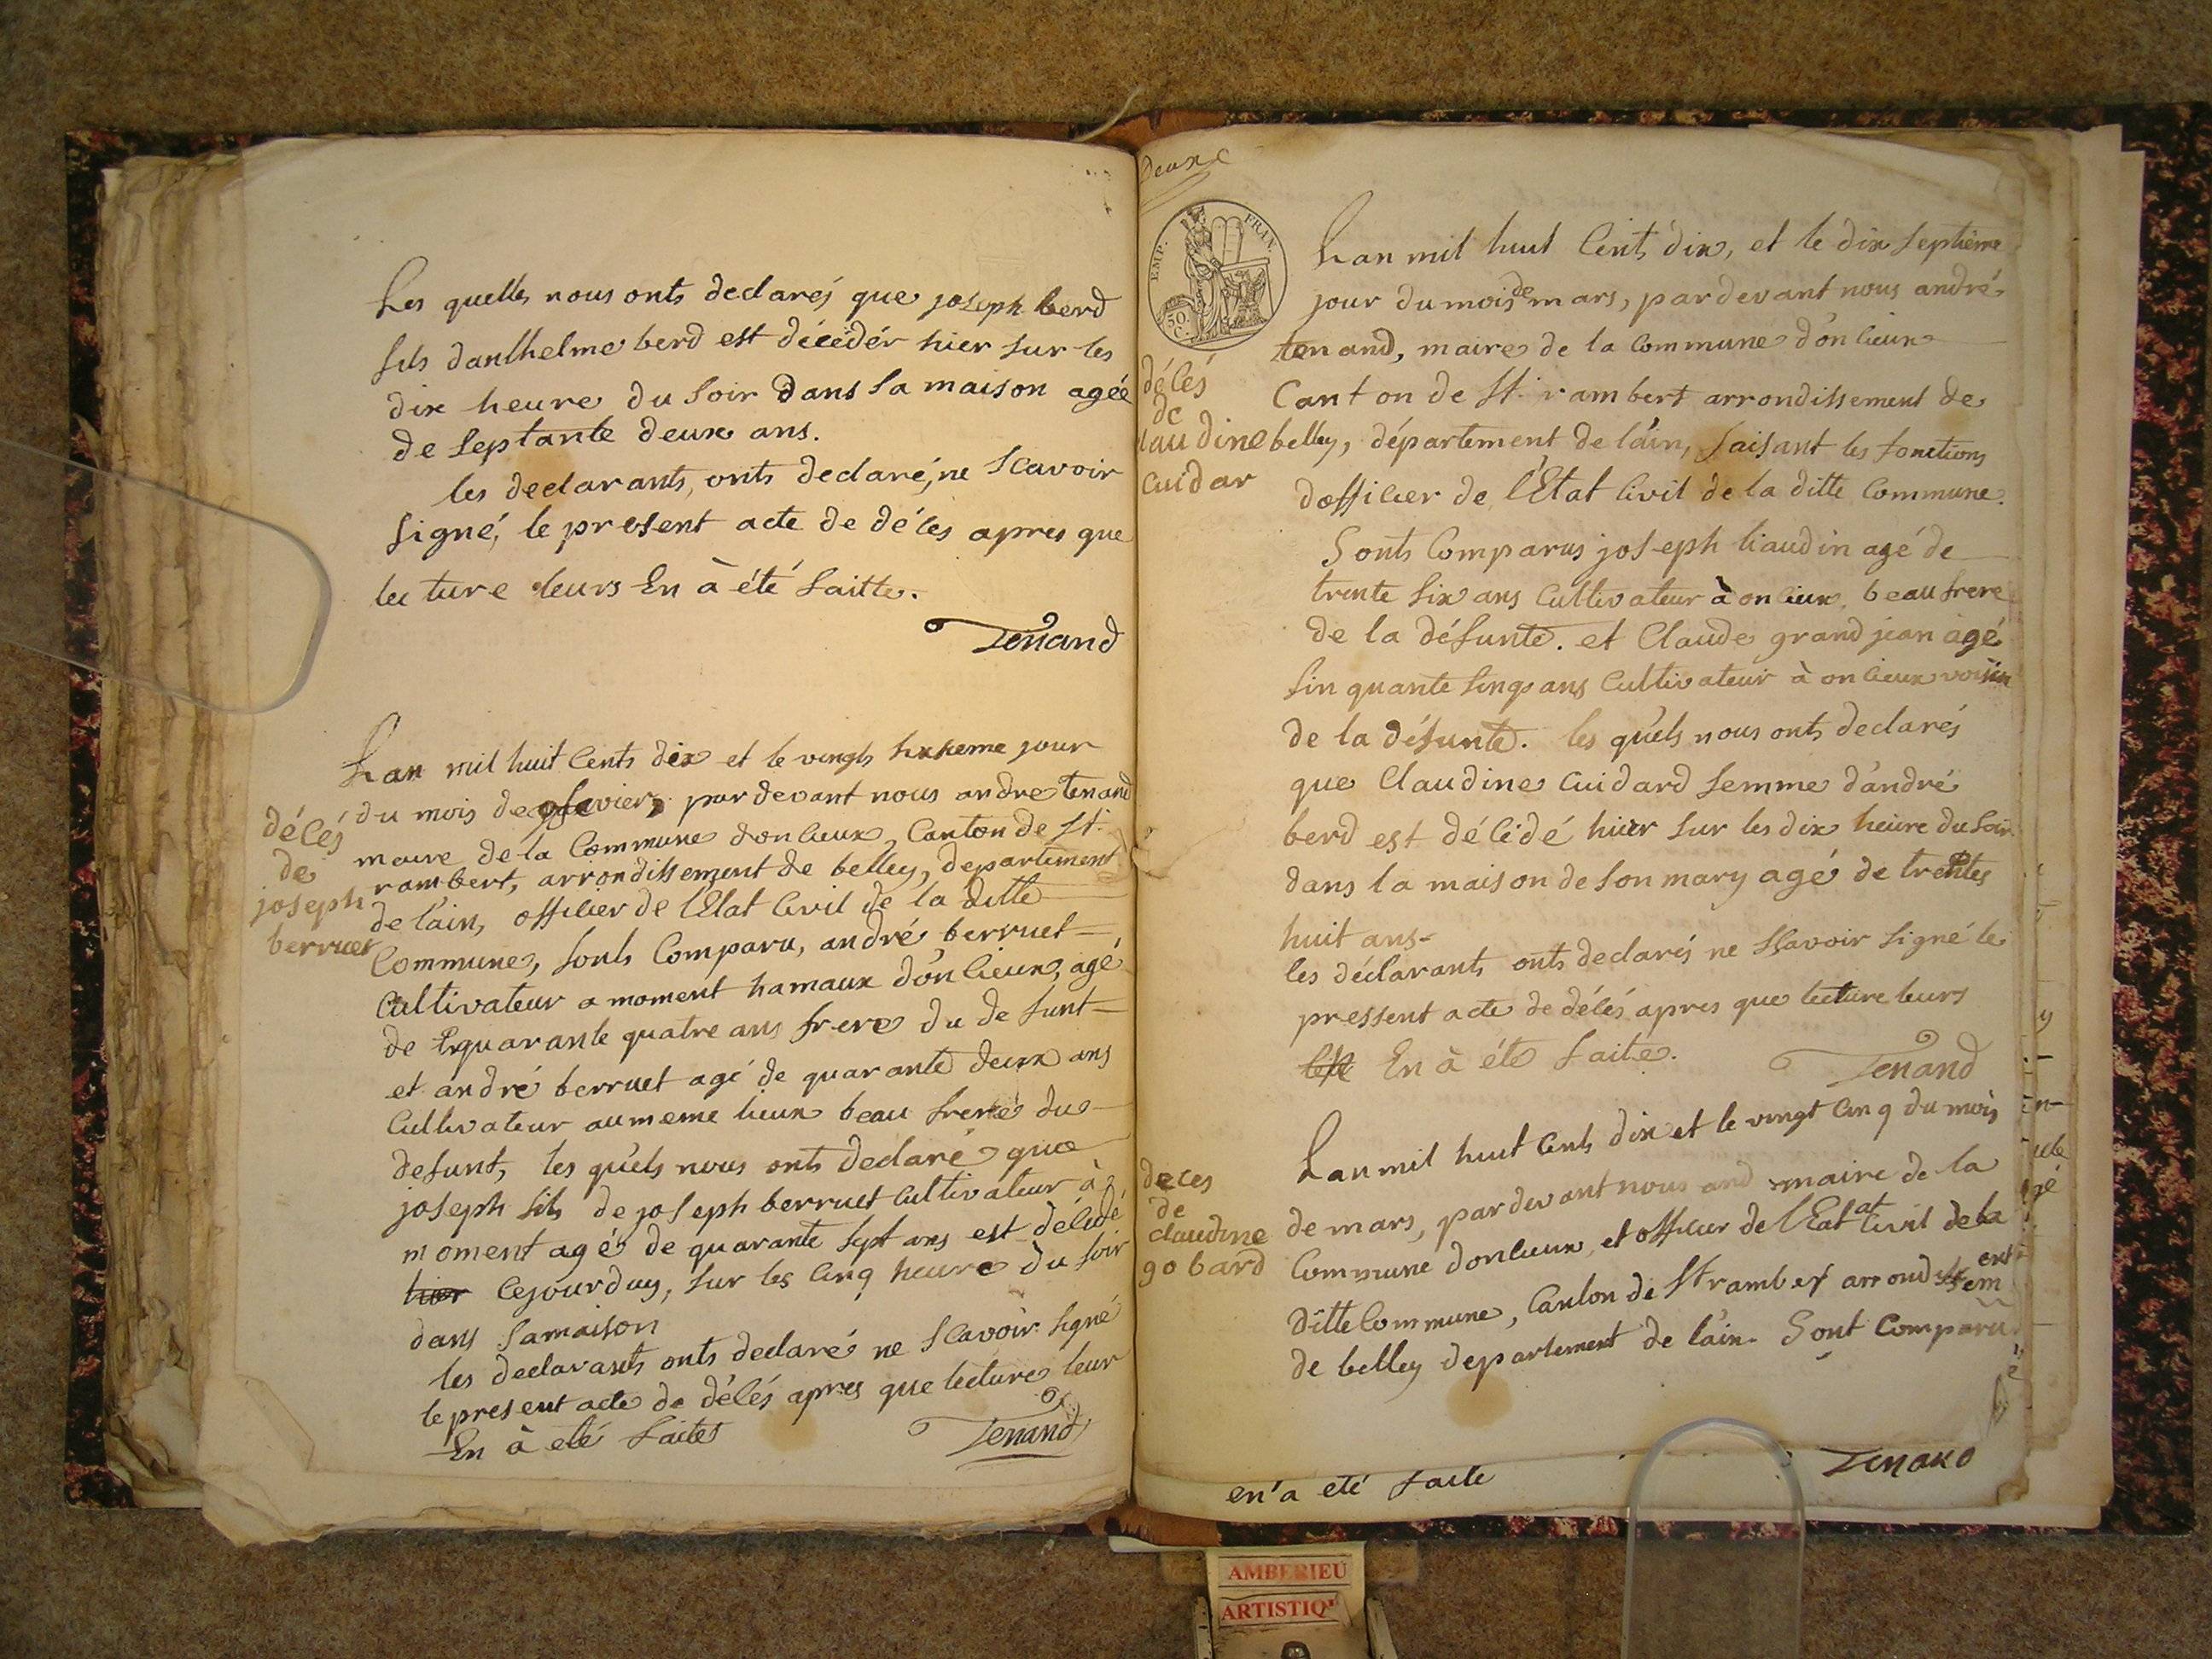 Les quells nous onts declarés que joseph berd
fils danthelme berd est décédér hier sur les
dix heure du soir dans sa maison agée
de septante deux ans.
les declarants, onts declaré, ne scavoir
signé, le present acte de déces apres que
lecture leurs En à été faitte.
Tenand
Lan mil huit Cents dix et le vingts sixieme jour
du mois de fevier, par devant nous andre tenand
maire de la Commune donlieux, Canton de St.
rambert, arrondissement de belley, departement
de lain, officier de lEtat Civil de la ditte
Commune, sonts Comparu, andré berruet
Cultivateur a moment hamaux d'onlieux, agé
de quarante quatre ans frere du de funt
et andré berruet agé de quarante deux ans
Cultivateur au meme lieux beau frere du
defunt, les quels nous onts declaré que
joseph fils de joseph berruet Cultivateur à
moment agé de quarante sept ans est décédé
hier Cejourduy, sur les Cinq heure du soir
dans samaison
les declarants onts declaré ne scavoir signé
le present acte de décés apres que lecture leur
En à eté faites
Tenand
décés
de
joseph
berruet
Deuxe
EMP. FRAN.
50.
C.
décés
de
laudine
Cuidar
Lan mil huit Cents dix, et le dix septième
jour du mois de mars, pardevant nous andré
tenand, maire de la Commune d'onlieux
Canton de St. rambert arrondissement de
belley, département de lain, faisant les fonctions
dofficier de lEtat Civil de la ditte Commune.
Sonts Comparus joseph liaudin agé de
trente six ans Cultivateur à onlieux, beaufrere
de la défunte. et Claude grand jean agé
sinquante sinq ans Cultivateur à onlieux voisin
de la défunte. les quels nous onts declarés
que Claudine Cuidard femme d'andré
berd est décidé hier sur les dix heure du soir
dans la maison de son mary agé de trentes
huit ans
les déclarants onts declarés ne scavoir signé le
pressent acte de décés apres que lecture leurs
En à été faite.
Tenand
deces
de
claudine
gobard
Lan mil huit Cents dix et le vingt Cinq du mois
de mars, par devant nous and maire de la
Commune donlieux, et officier de lEtat Civil de la
ditte Commune, Canton de St rambert arrondissement
de belley departement de lain. Sont Comparu
en'a eté faite
Tenand
AMBERIEU
ARTISTIQ